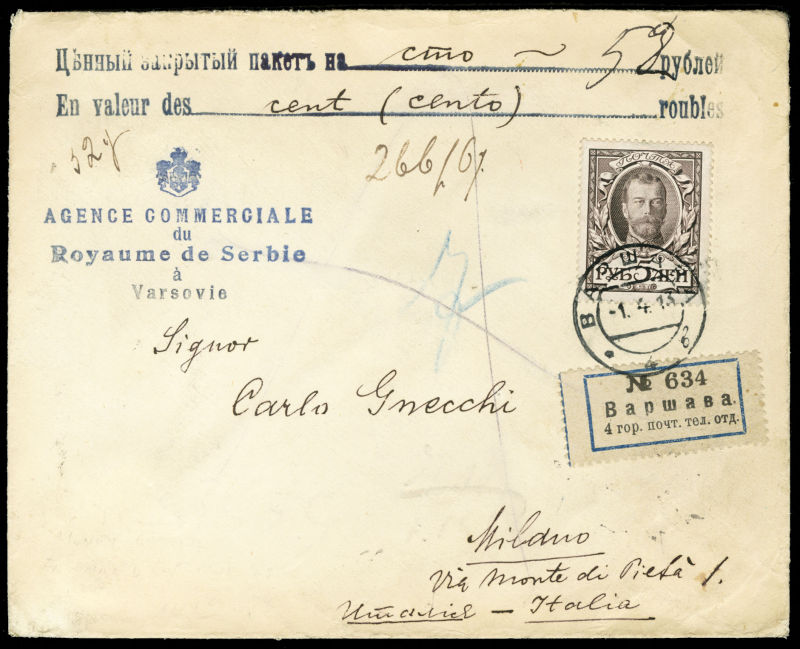 Цѣнный закрытый пакетъ на сто ~ 52 рублей
En valeur des cent (cento) roubles
52
266/67.
AGENCE COMMERCIALE
du
Royaume de Serbie
à
Varsovie
ПОЧТА
5
РУБЛЕЙ
ВАРШАВА
-1. 4. 13
Signor
Carlo Gnecchi
№ 634
Варшава.
4 гор. почт. тел. отд.
Milano
Via Monte di Pietà 1.
Италия – Italia